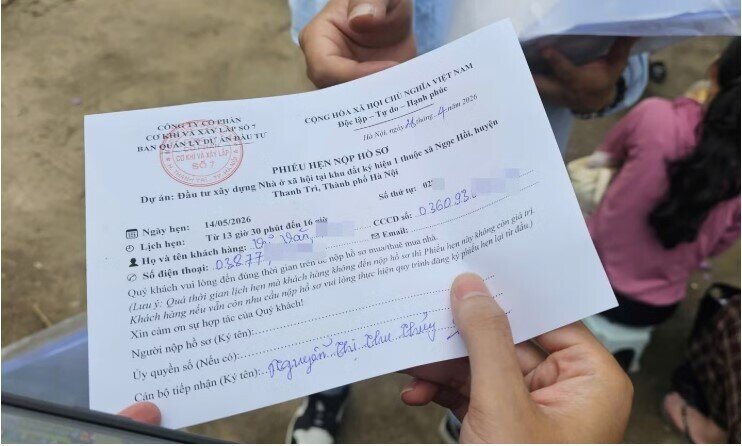 CÔNG TY CỔ PHẦN
CƠ KHÍ VÀ XÂY LẮP SỐ 7
BAN QUẢN LÝ DỰ ÁN ĐẦU TƯ
CỘNG HÒA XÃ HỘI CHỦ NGHĨA VIỆT NAM
Độc lập – Tự do – Hạnh phúc
Hà Nội, ngày 26 tháng 4 năm 2026
CƠ KHÍ VÀ XÂY LẮP
SỐ 7
PHIẾU HẸN NỘP HỒ SƠ
Dự án: Đầu tư xây dựng Nhà ở xã hội tại khu đất ký hiệu 1 thuộc xã Ngọc Hồi, huyện
Thanh Trì, Thành phố Hà Nội
Số thứ tự: 02
Ngày hẹn: 14/05/2026
Lịch hẹn: Từ 13 giờ 30 phút đến 16 giờ
CCCD số: 036093
Họ và tên khách hàng: Văn
Email:
Số điện thoại: 03877
Quý khách vui lòng đến đúng thời gian trên để nộp hồ sơ mua/thuê mua nhà.
(Lưu ý: Quá thời gian lịch hẹn mà khách hàng không đến nộp hồ sơ thì Phiếu hẹn này không còn giá trị.
Khách hàng nếu vẫn còn nhu cầu nộp hồ sơ vui lòng thực hiện quy trình đăng ký phiếu hẹn lại từ đầu.)
Xin cảm ơn sự hợp tác của Quý khách!
Người nộp hồ sơ (Ký tên):
Ủy quyền số (Nếu có):
Cán bộ tiếp nhận (Ký tên): Nguyễn Thị Thu Thủy